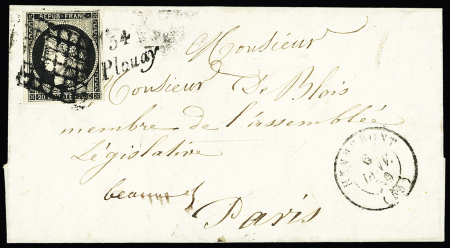 REPUB. FRANC.
54
Plouay
Monsieur
Monsieur De Blois
membre de l'assemblée
Législative
Paris
HENNEBONT
6
(54)